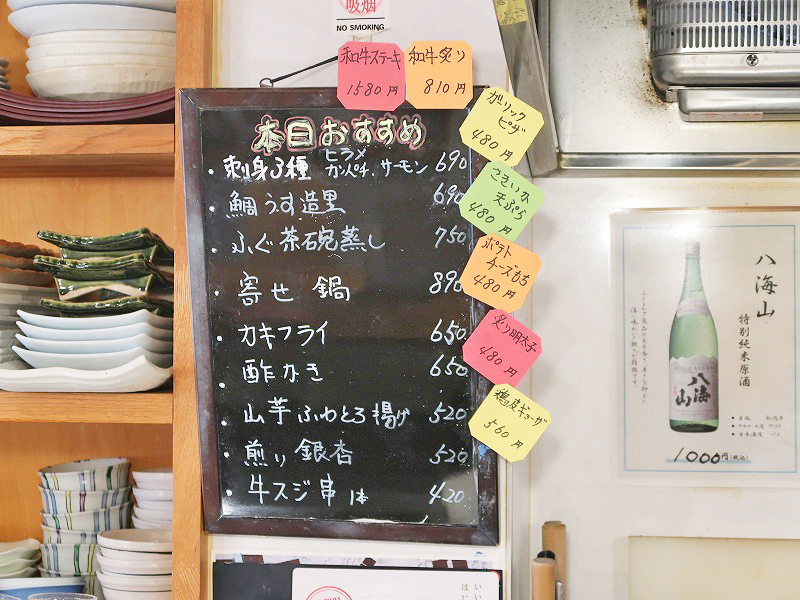 吸烟
NO SMOKING
和牛ステーキ
1580円
和牛炙り
810円
本日おすすめ
・刺身3種 ヒラメ カンパチ、サーモン 690
・鯛うす造里 690
・ふぐ茶碗蒸し 750
・寄せ鍋 890
・カキフライ 650
・酢かき 650
・山芋ふわとろ揚げ 520
・煎り銀杏 520
・牛スジ串 1本 420
ガーリック
ピザ
480円
さきいか
天ぷら
480円
ポテト
チーズもち
480円
炙り明太子
480円
鶏皮ギョーザ
560円
八海山
特別純米原酒
八海山
1000円(税込)